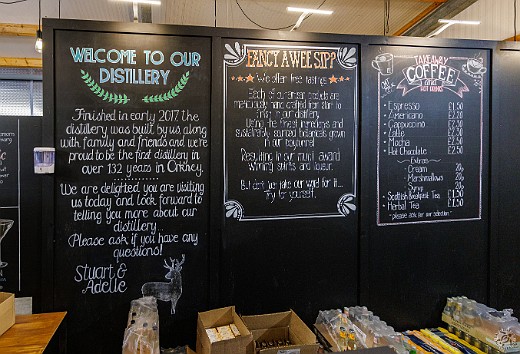 WELCOME TO OUR
DISTILLERY
Finished in early 2017 the
distillery was built by us along
with family and friends and we're
proud to be the first distillery in
over 132 years in Orkney.
We are delighted you are visiting
us today and look forward to
telling you more about our
distillery.
Please ask if you have any
questions!
Stuart &
Adelle
FANCY A WEE SIP?
We offer free tastings
Each of our artisan products are
meticulously hand crafted from start to
finish in our distillery
Using the finest ingredients and
sustainably sourced botanicals grown
in our
Resulting in our multi award
winning spirits and liqueur.
But don't just take our word for it...
try for yourself.
TAKEAWAY
COFFEE
& OTHER
HOT DRINKS
Espresso £1.50
Americano £2.20
Cappuccino £2.50
Latte £2.50
Mocha £2.50
Hot Chocolate £2.50
Extras
Cream 20p
Marshmallows 20p
Syrup 50p
Scottish Breakfast Tea £1.50
Herbal Tea £1.50
please ask for our selection